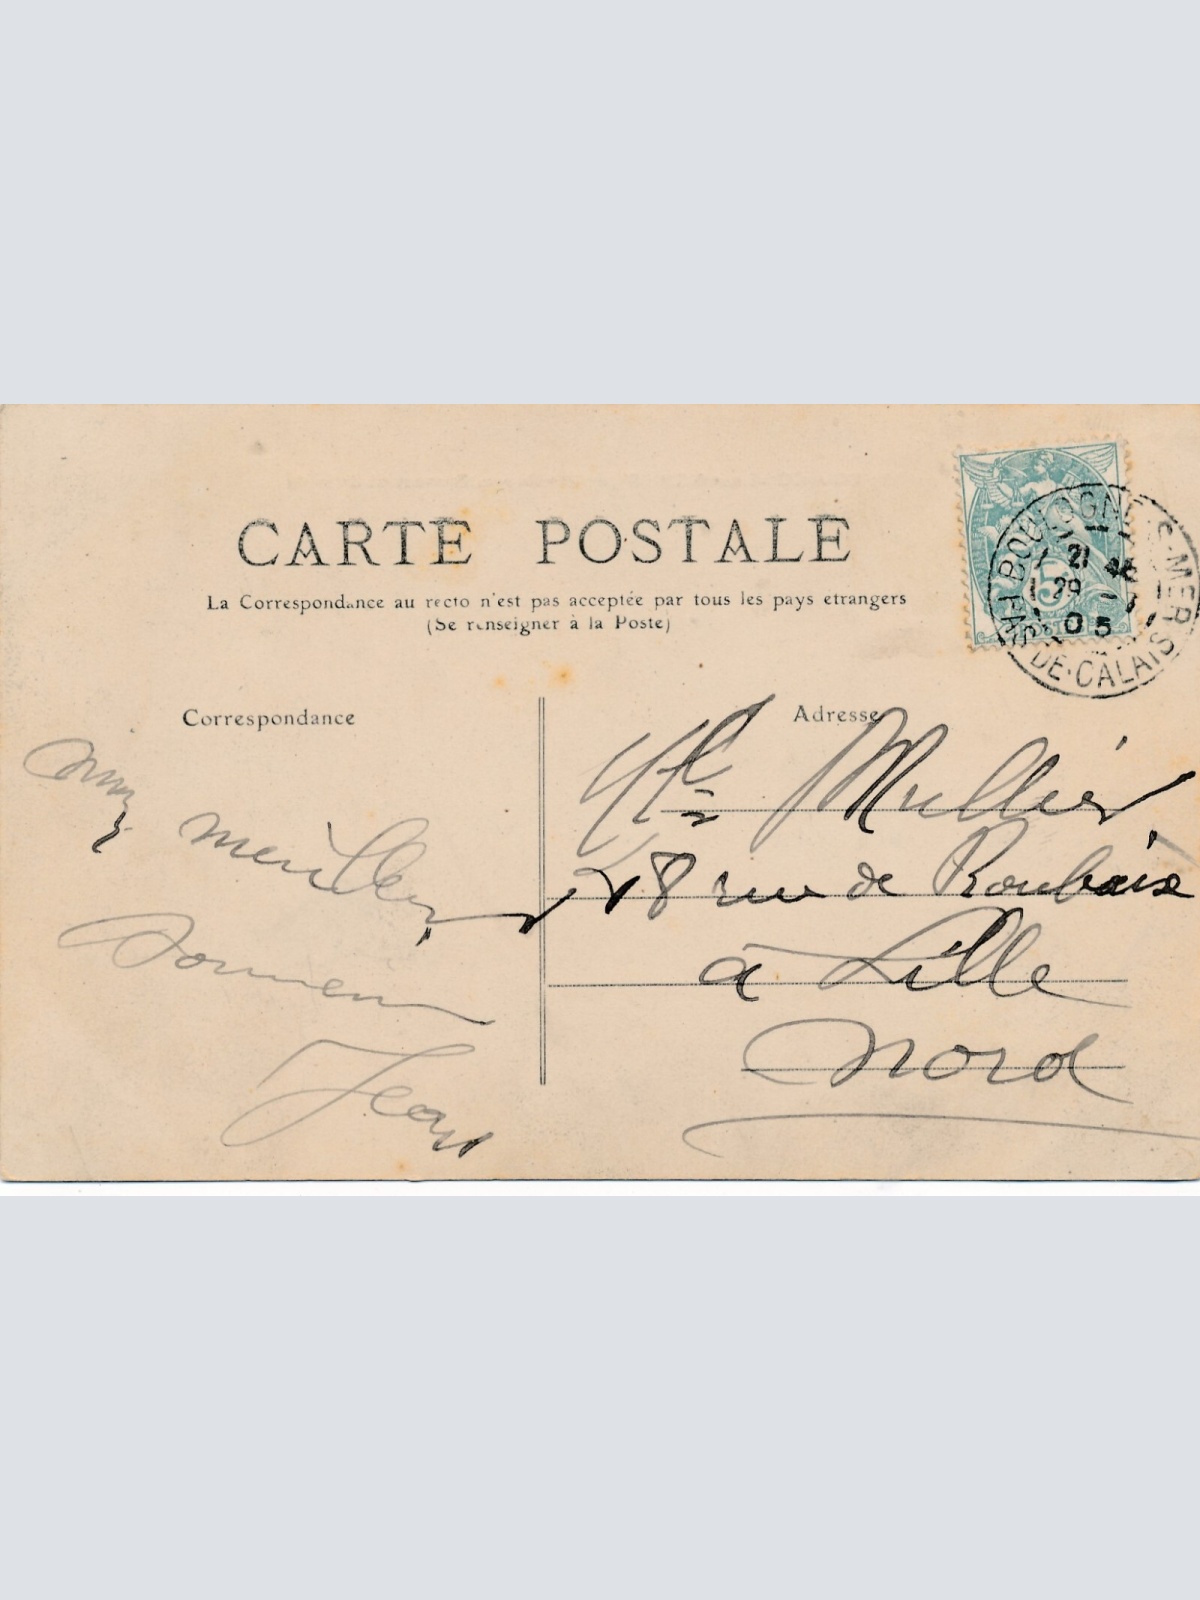 CARTE POSTALE
La Correspondance au recto n'est pas acceptée par tous les pays etrangers
(Se renseigner à la Poste)
BOULOGNE-S-MER
21 45
29 -7
05
PAS-DE-CALAIS
5
Correspondance
Adresse
meilleurs
Souvenirs
Jean
Mullier
28 rue de Roubaix
à Lille
Nord